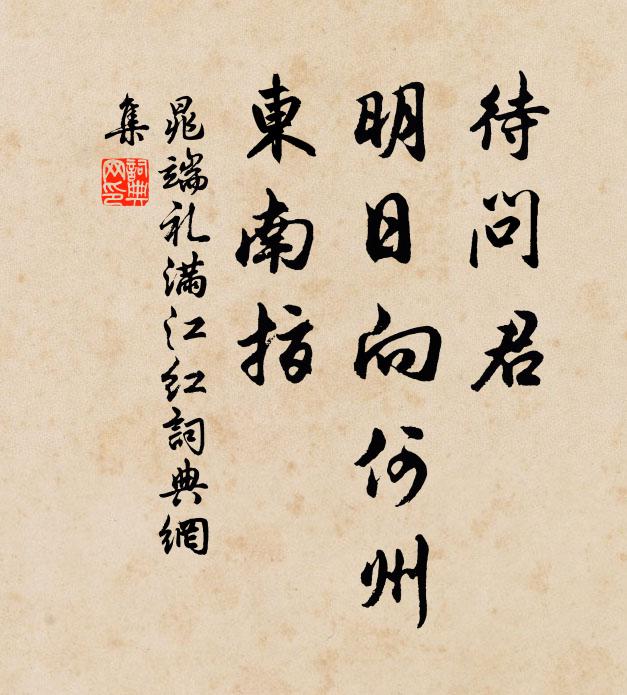 待問君
明日向何州
東南指
晁端礼满江红詞典網
集
詞典网印